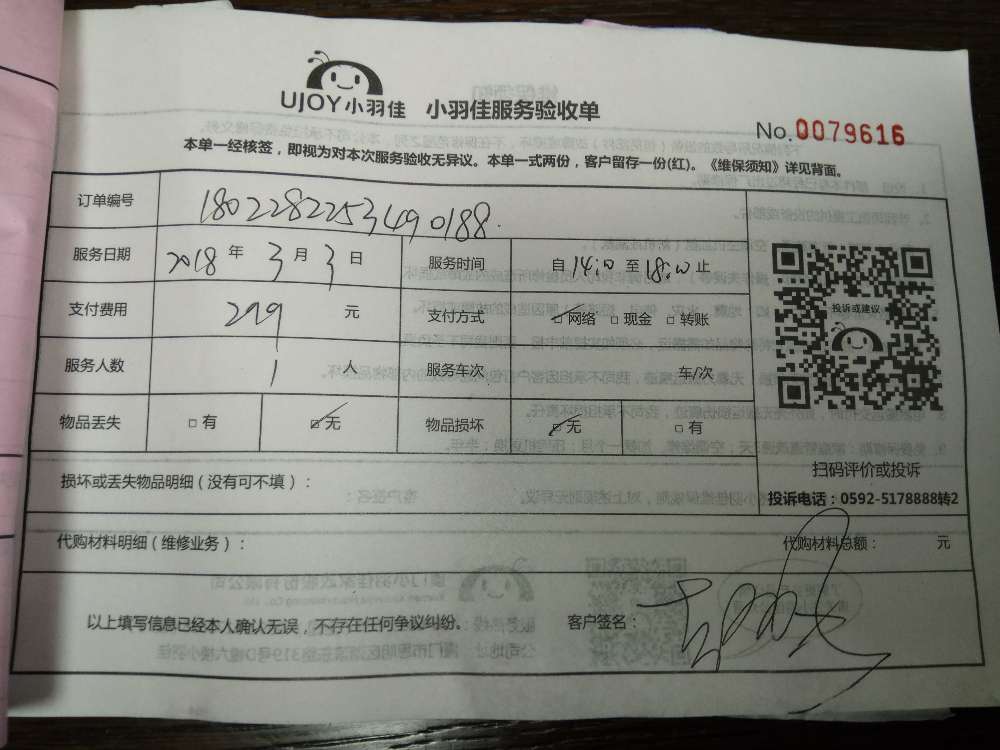 UJOY小羽佳 小羽佳服务验收单
No.0079616
本单一经核签，即视为对本次服务验收无异议。本单一式两份，客户留存一份(红)。《维保须知》详见背面。
订单编号 18022822534490188
服务日期 2018 年 3 月 3 日 服务时间 自 14:00 至 18:00 止
支付费用 299 元 支付方式 ☑网络 □现金 □转账
服务人数 1 人 服务车次 车/次
物品丢失 □有 ☑无 物品损坏 ☑无 □有
投诉或建议
扫码评价或投诉
投诉电话：0592-5178888转2
损坏或丢失物品明细（没有可不填）：
代购材料明细（维修业务）： 代购材料总额： 元
以上填写信息已经本人确认无误，不存在任何争议纠纷。 客户签名：